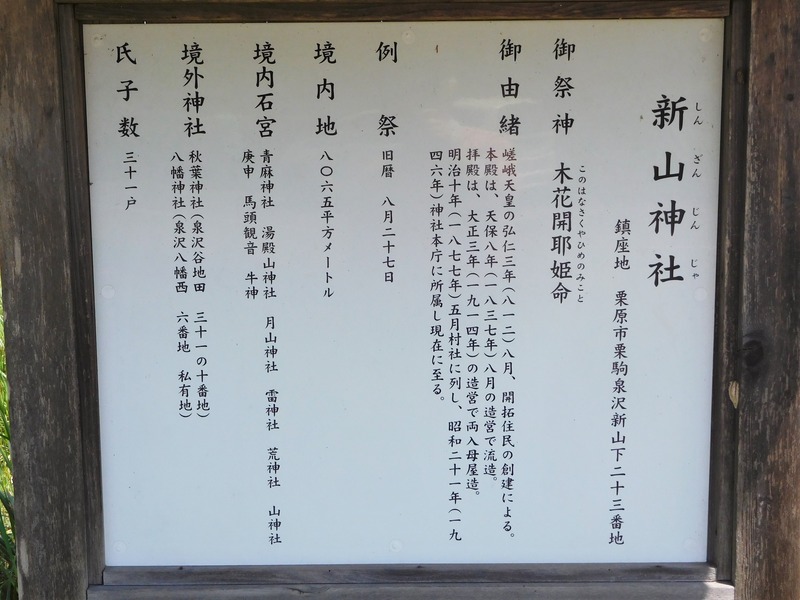 新山神社
しんざんじんじゃ
鎮座地　栗原市栗駒泉沢新山下二十三番地
御祭神　木花開耶姫命
このはなさくやひめのみこと
御由緒　嵯峨天皇の弘仁三年（八一二）八月、開拓住民の創建による。
本殿は、天保八年（一八三七年）八月の造営で流造。
拝殿は、大正三年（一九一四年）の造営で両入母屋造。
明治十年（一八七七年）五月村社に列し、昭和二十一年（一九
四六年）神社本庁に所属し現在に至る。
例祭　旧暦　八月二十七日
境内地　八〇六五平方メートル
境内石宮　青麻神社　湯殿山神社　月山神社　雷神社　荒神社　山神社
庚申　馬頭観音　牛神
境外神社　秋葉神社（泉沢谷地田　三十一の十番地）
八幡神社（泉沢八幡西　六番地　私有地）
氏子数　三十一戸